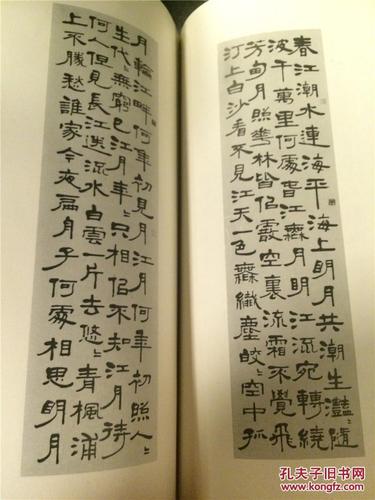 春江潮水連海平海上明月共潮生灩〻隨
波千萬里何處春江無月明江流宛轉繞
芳甸月照花林皆似霰空裏流霜不覺飛
汀上白沙看不見江天一色無纖塵皎〻空中孤
月輪江畔何年初見月江月何年初照人〻
生代〻無窮已江月年〻只相似不知江月待
何人但見長江送流水白雲一片去悠〻青楓浦
上不勝愁誰家今夜扁舟子何處相思明月
孔夫子旧书网
kongfz.com